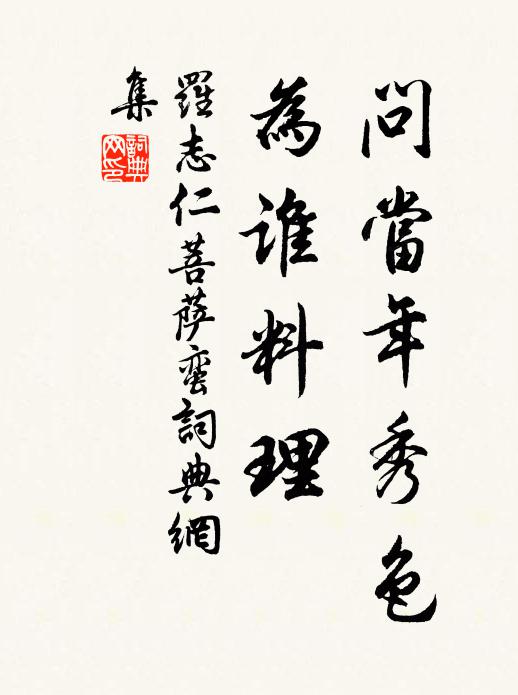 問當年秀色
為誰料理
羅志仁菩薩蠻詞典網
集
詞典網印